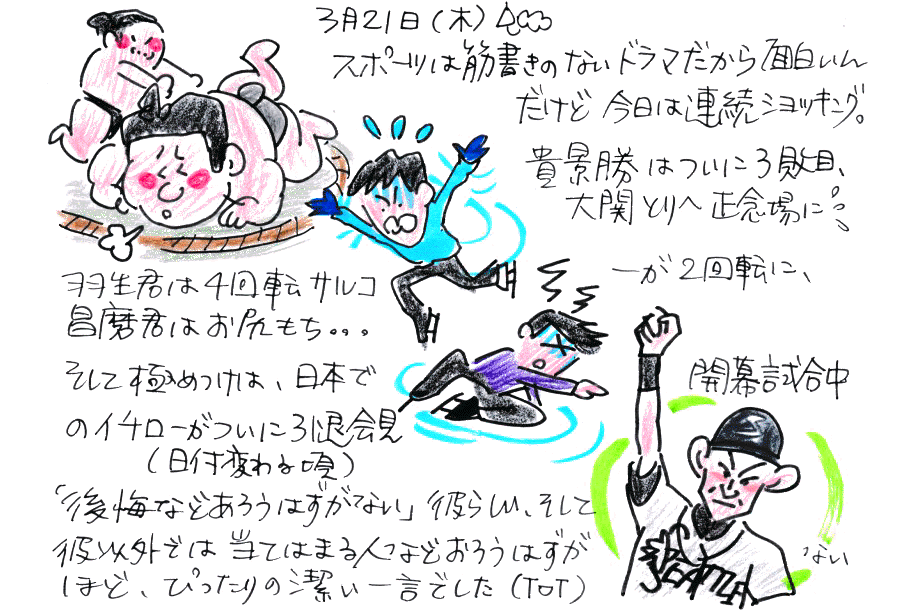 3月21日(木)
スポーツは筋書きのないドラマだから面白いん
だけど今日は連続ショッキング。
貴景勝はついに3敗目、
大関とりへ正念場に
羽生君は4回転サルコーが2回転に、
昌磨君はお尻もち。。。
そして極めつけは、日本で開幕試合中
のイチローがついに引退会見
(日付変わる頃)
「後悔などあろうはずがない」彼らしい、そして
彼以外では当てはまる人などおろうはずがない
ほど、ぴったりの潔い一言でした(ToT)
SEATTLE